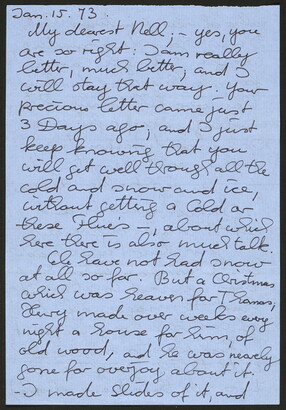 Jan. 15. 73.
My dearest Nell; – yes, you
are so right: I am really
better, much better, and I
will stay that way. Your
precious letter came just
3 Days ago, and I just
keep knowing that you
will get well through all the
cold and snow and ice,
without getting a Cold or
these Flue's –, about which
here there is also much talk.
We have not had snow
at all so far. But a Christmas
which was heaven for Thomas,
Henry made over weeks every
night a house for him, of
old wood, and he was nearly
gone for overjoy about it.
– I made slides of it, and